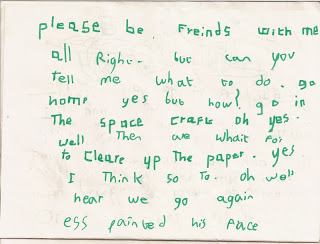 please be Freinds with me
all Right. but can you
tell me what to do. go
home yes but how? go in
The space craft oh yes.
well Then we whait for
to Cleare up The paper. yes
I Think so to. oh well
hear we go again
ess painted his face